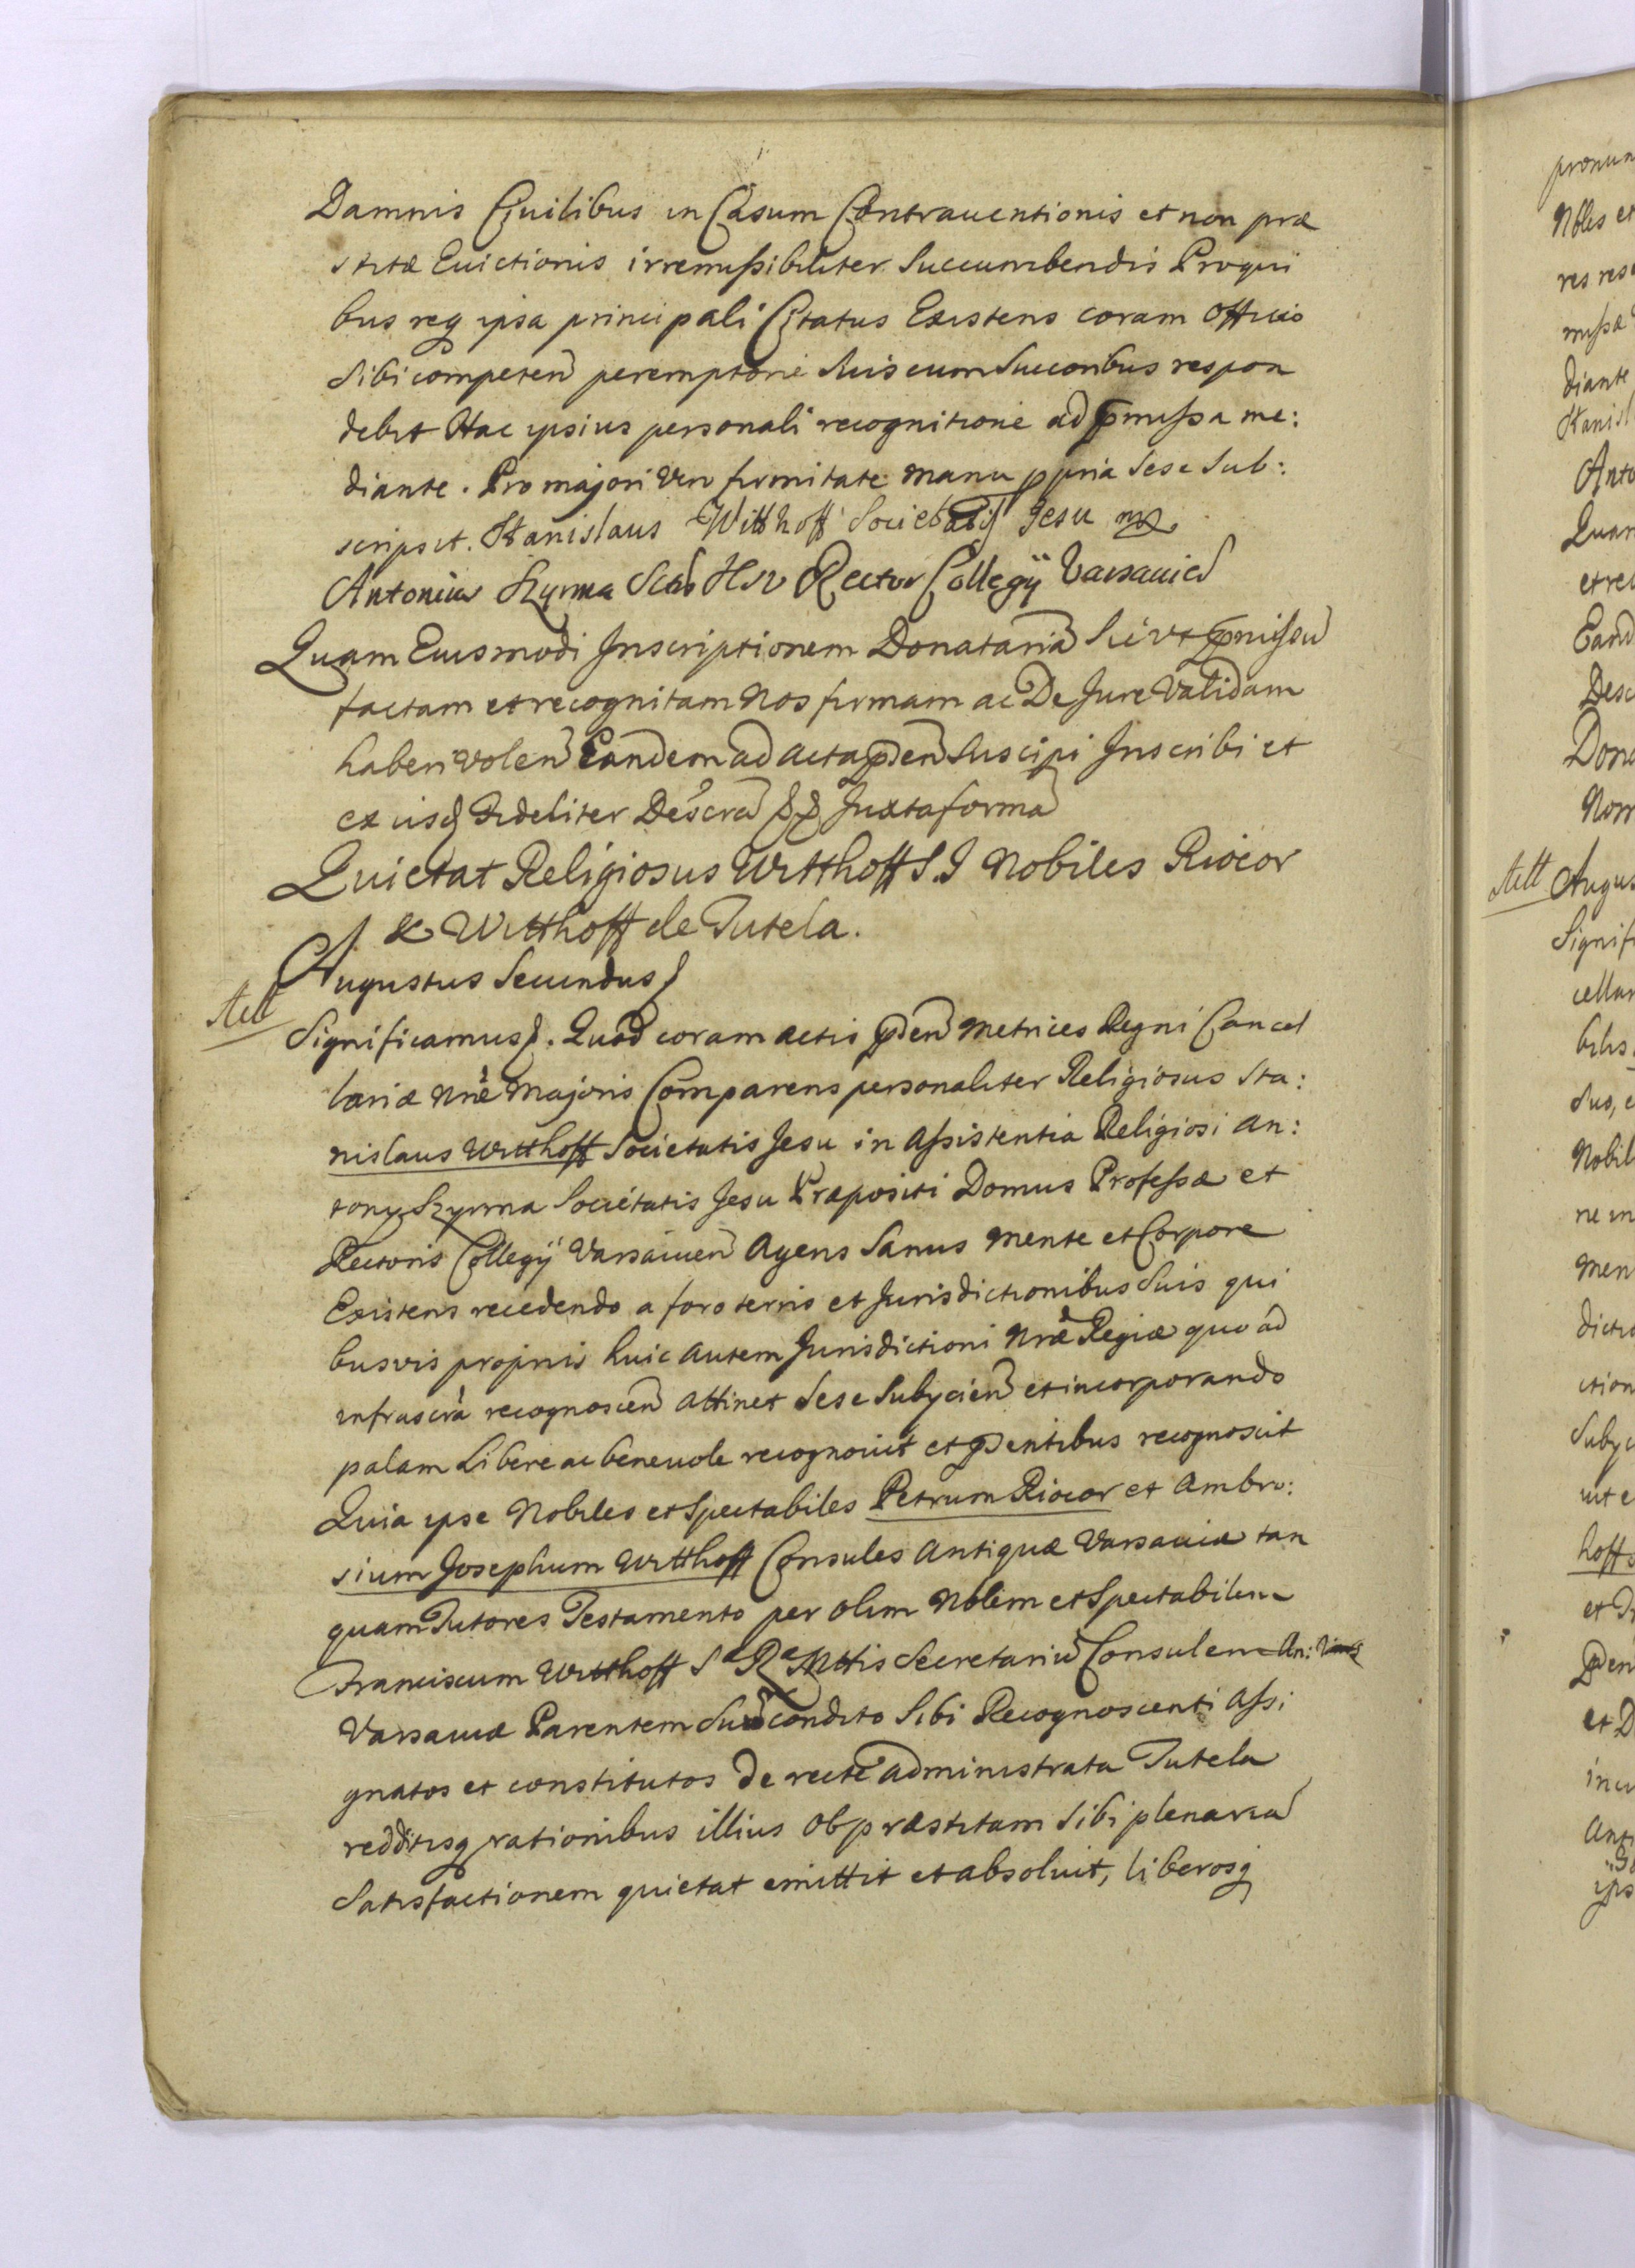 Damnis Civilibus in Casum Contrauentionis et non præ
stitæ Euictionis irremissibiliter Succumbendis Proqui
bus req ipsa principali Citatus Existens coram Officio
Sibi competen peremptorie Suis cum Succonibus respon
debit Hac ipsius personali recognitione ad pmissa me:
diante. Pro majori vero firmitate manu ppria Sese Sub:
scripsit. Stanislaus Witthoff Societatis Jesu mp
Antonius Szyrma Sctis Jesu Rector Collegij Varsauien
Quam Eiusmodi Inscriptionem Donatariã Sic vt pmissu
factam et recognitam Nos firmam ac De Jure Validam
haberi volen Eandem ad Acta pden Suscipi Inscribi et
ex iisq Fideliter Juxta formã
Quietat Religiosus Witthoff S.J Nobiles Riocor
& Witthoff de Tutela.
Augustus Secundus
Act
Significamus. Quod coram actis pden Metrices Regni Cancel
lariæ Nræ Majoris Comparens personaliter Religiosus Sta:
nislaus Witthoff Societatis Jesu in Assistentia Religiosi An:
tonij Szyrma Societatis Jesu Præpositi Domus Professæ et
Rectoris Collegij Varsauien Agens Sanus mente et Corpore
Existens recedendo a foro terris et Jurisdictionibus Suis qui
busvis proprijs huic autem Jurisdictioni Nræ Regiæ quo ad
infrascra recognoscen attinet Sese Subycien et incorporando
palam Libere ac beneuole recognouit et pdentibus recognoscit
Quia ipse Nobiles et Spectabiles Petrum Riocor et Ambro:
sium Josephum Witthoff Consules Antiquæ Varsauiæ tan
quam Tutores Testamento per olim Noblem et Spectabilem
Franciscum Witthoff S Ræ Mttis Secretariũ Consulem An:
Varsauiæ Parentem Suũ condito Sibi Recognoscenti Assi
gnatos et constitutos de recte administrata Tutela
redditisq rationibus illius ob præstitam Sibi plenariã
Satisfactionem quietat emittit et absoluit, liberosq